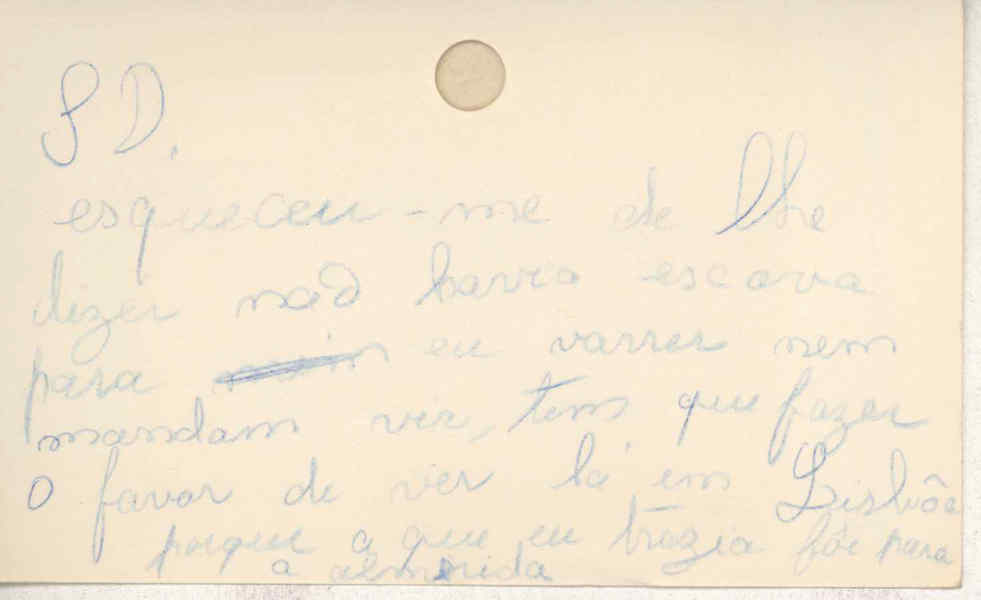 S D.
esqueceu-me de lhe
dizer não havia escova
para eu varrer nem
mandam vir, tem que fazer
o favor de ver lá em Lisbôa
porque a que eu trazia foi para
a